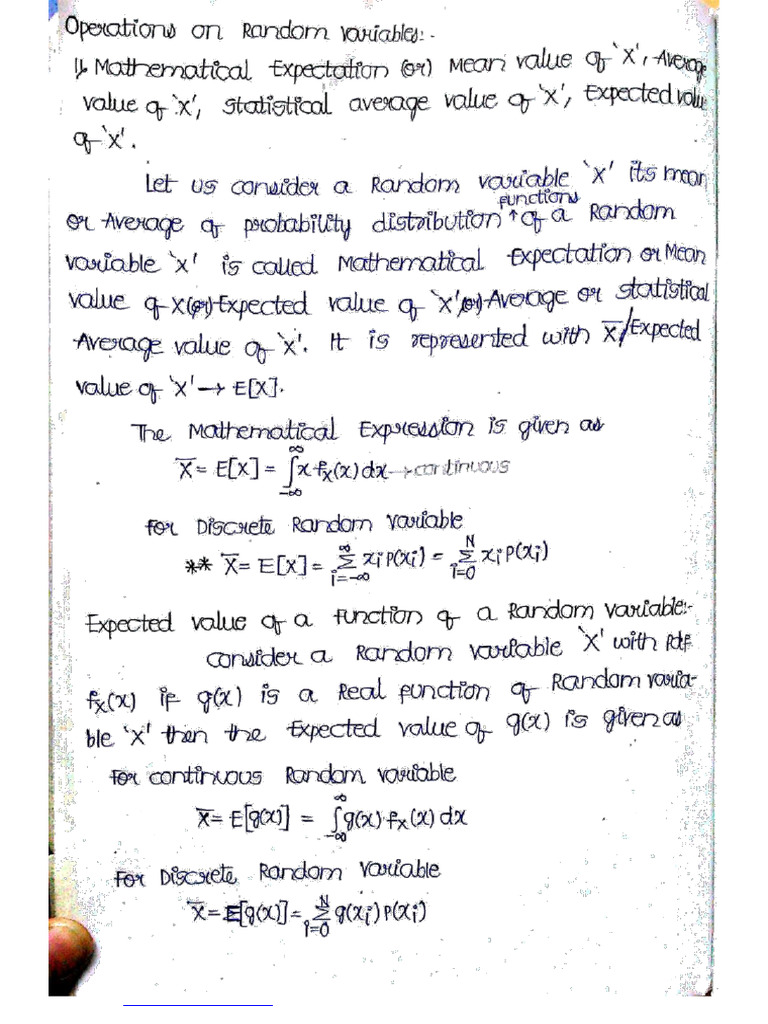 Operations on Random Variables:-
1. Mathematical Expectation (or) Mean value of 'X', Average
value of 'X', Statistical average value of 'X', Expected value
of 'X'.
Let us consider a Random variable 'X' its mean
functions
or Average of probability distribution ↑ of a Random
variable 'X' is called Mathematical Expectation or Mean
value of X (or) Expected value of 'X' (or) Average or Statistical
Average value of 'X'. It is represented with X̅/Expected
value of 'X' → E[X].
The Mathematical Expression is given as
X̅ = E[X] = ∫_{-∞}^{∞} x f_X(x) dx → continuous
for Discrete Random variable
** X̅ = E[X] = Σ_{i=-∞}^{∞} x_i P(x_i) = Σ_{i=0}^{N} x_i P(x_i)
Expected value of a function of a Random variable:-
consider a Random variable 'X' with Pdf
f_X(x) if g(x) is a Real function of Random varia-
ble 'X' then the Expected value of g(x) is given as
for continuous Random variable
X̅ = E[g(x)] = ∫_{-∞}^{∞} g(x) · f_X(x) dx
For Discrete Random variable
X̅ = E[g(x)] = Σ_{i=0}^{N} g(x_i) P(x_i)